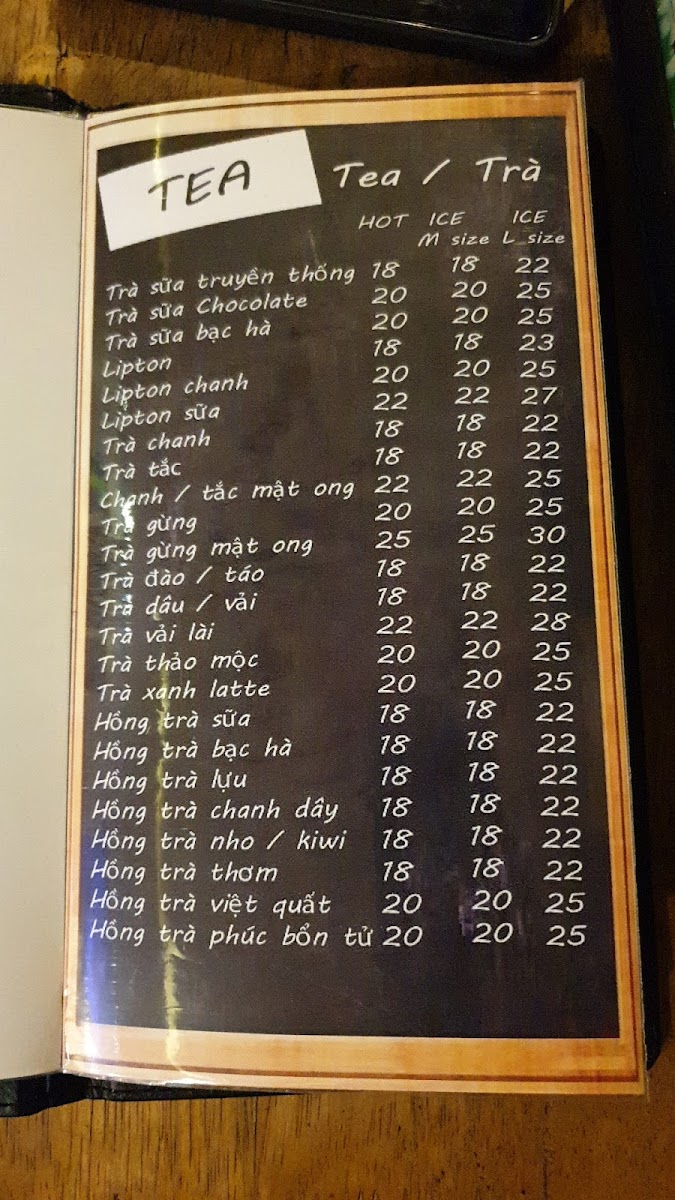 TEA Tea / Trà
HOT ICE ICE
M size L size
Trà sữa truyền thống 18 18 22
Trà sữa Chocolate 20 20 25
Trà sữa bạc hà 20 20 25
Lipton 18 18 23
Lipton chanh 20 20 25
Lipton sữa 22 22 27
Trà chanh 18 18 22
Trà tắc 18 18 22
Chanh / tắc mật ong 22 22 25
Trà gừng 20 20 25
Trà gừng mật ong 25 25 30
Trà đào / táo 18 18 22
Trà dâu / vải 18 18 22
Trà vải lài 22 22 28
Trà thảo mộc 20 20 25
Trà xanh latte 20 20 25
Hồng trà sữa 18 18 22
Hồng trà bạc hà 18 18 22
Hồng trà lựu 18 18 22
Hồng trà chanh dây 18 18 22
Hồng trà nho / kiwi 18 18 22
Hồng trà thơm 18 18 22
Hồng trà việt quất 20 20 25
Hồng trà phúc bồn tử 20 20 25